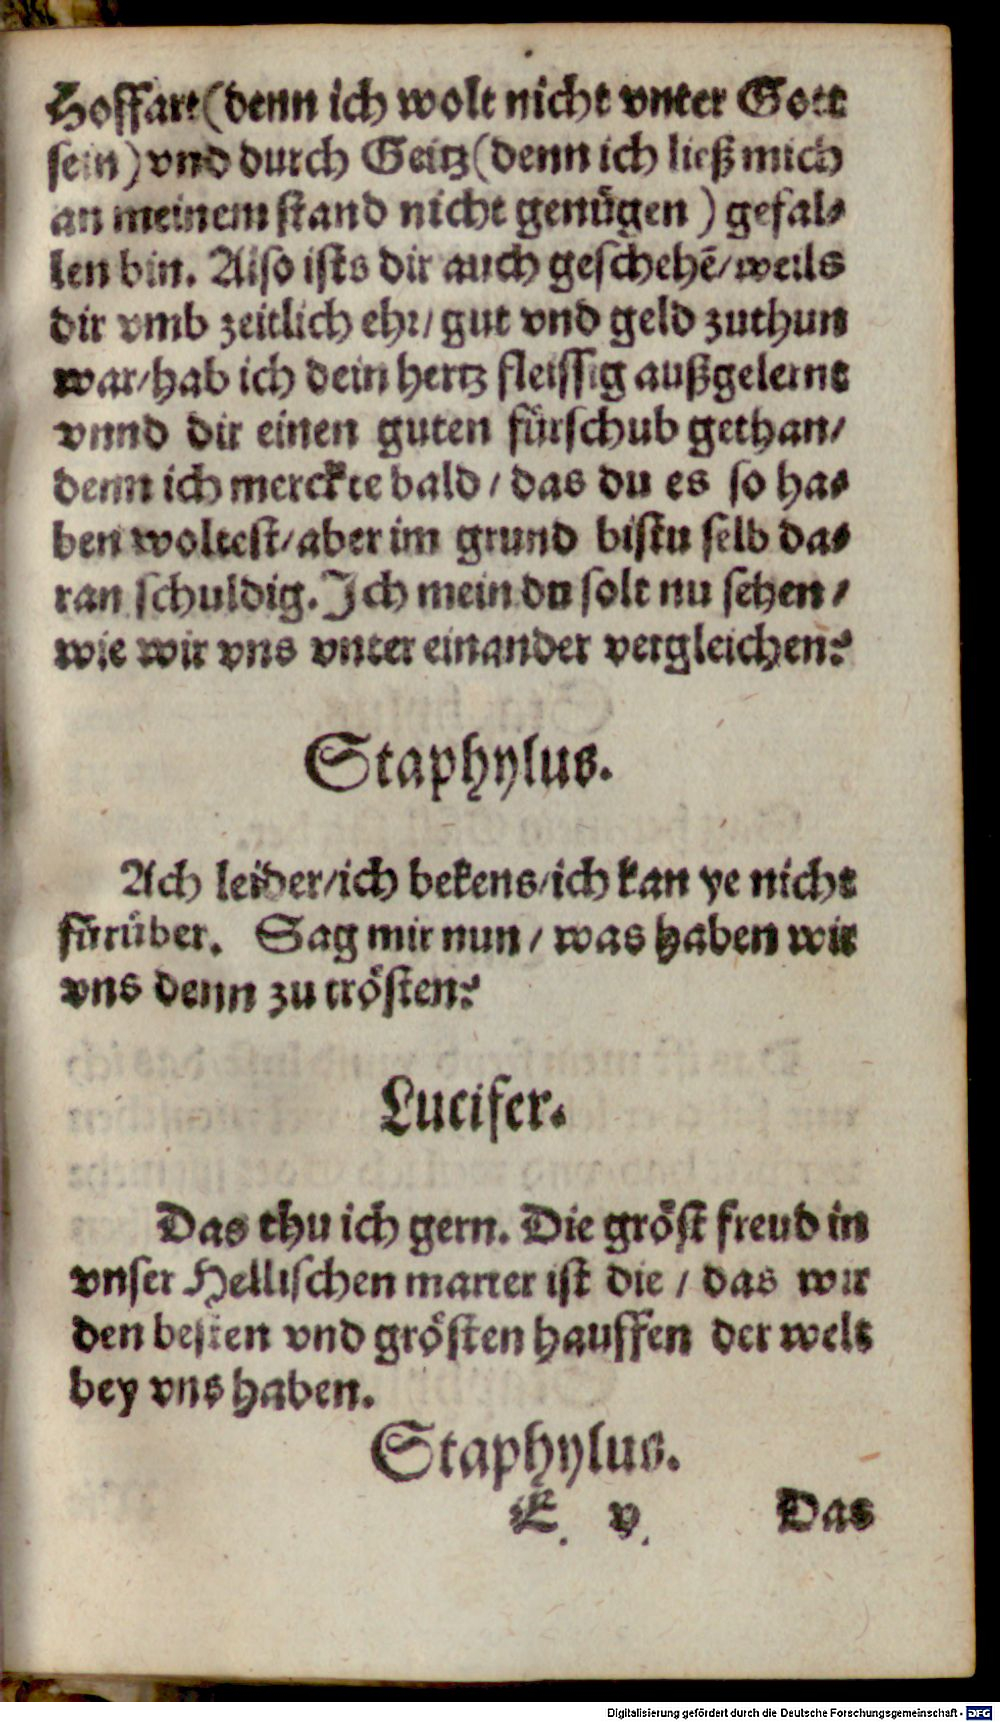 Hoffart (denn ich wolt nicht vnter Gott
sein) vnd durch Geitz (denn ich ließ mich
an meinem stand nicht genügen) gefal⸗
len bin. Also ists dir auch geschehē / weils
dir vmb zeitlich ehr / gut vnd geld zuthun
war / hab ich dein hertz fleissig außgelernt
vnnd dir einen guten fürschub gethan /
denn ich merckte bald / das du es so ha⸗
ben woltest / aber im grund bistu selb da⸗
ran schuldig. Ich mein du solt nu sehen /
wie wir vns vnter einander vergleichen?
Staphylus.
Ach leider / ich bekens / ich kan ye nicht
fürüber. Sag mir nun / was haben wir
vns denn zu trösten?
Lucifer.
Das thu ich gern. Die gröst freud in
vnser Hellischen marter ist die / das wir
den besten vnd grösten hauffen der welt
bey vns haben.
Staphylus.
E v Das
Digitalisierung gefördert durch die Deutsche Forschungsgemeinschaft - DFG